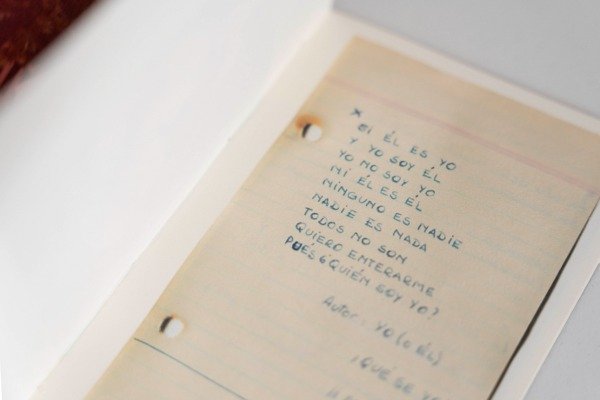 *
SI ÉL ES YO
Y YO SOY ÉL
YO NO SOY YO
NI ÉL ES ÉL
NINGUNO ES NADIE
NADIE ES NADA
TODOS NO SON
QUIERO ENTERARME
PUÉS ¿QUIÉN SOY YO?
Autor: YO (o ÉL)
¡QUÉ SE YO